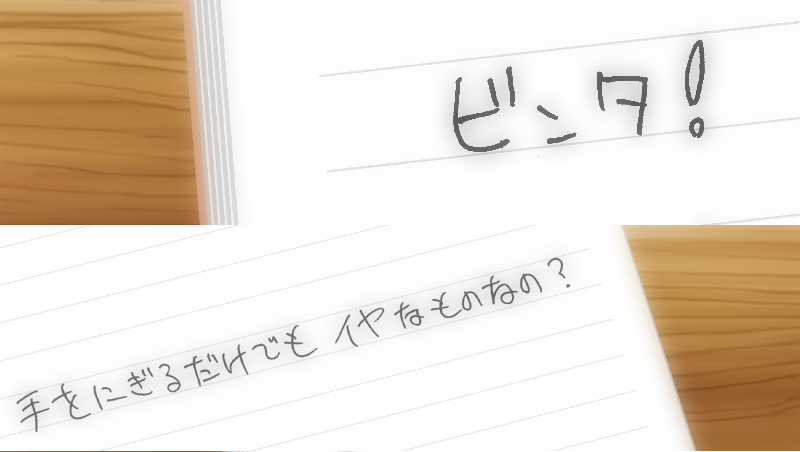 ビンタ!
手をにぎるだけでも イヤなものなの?